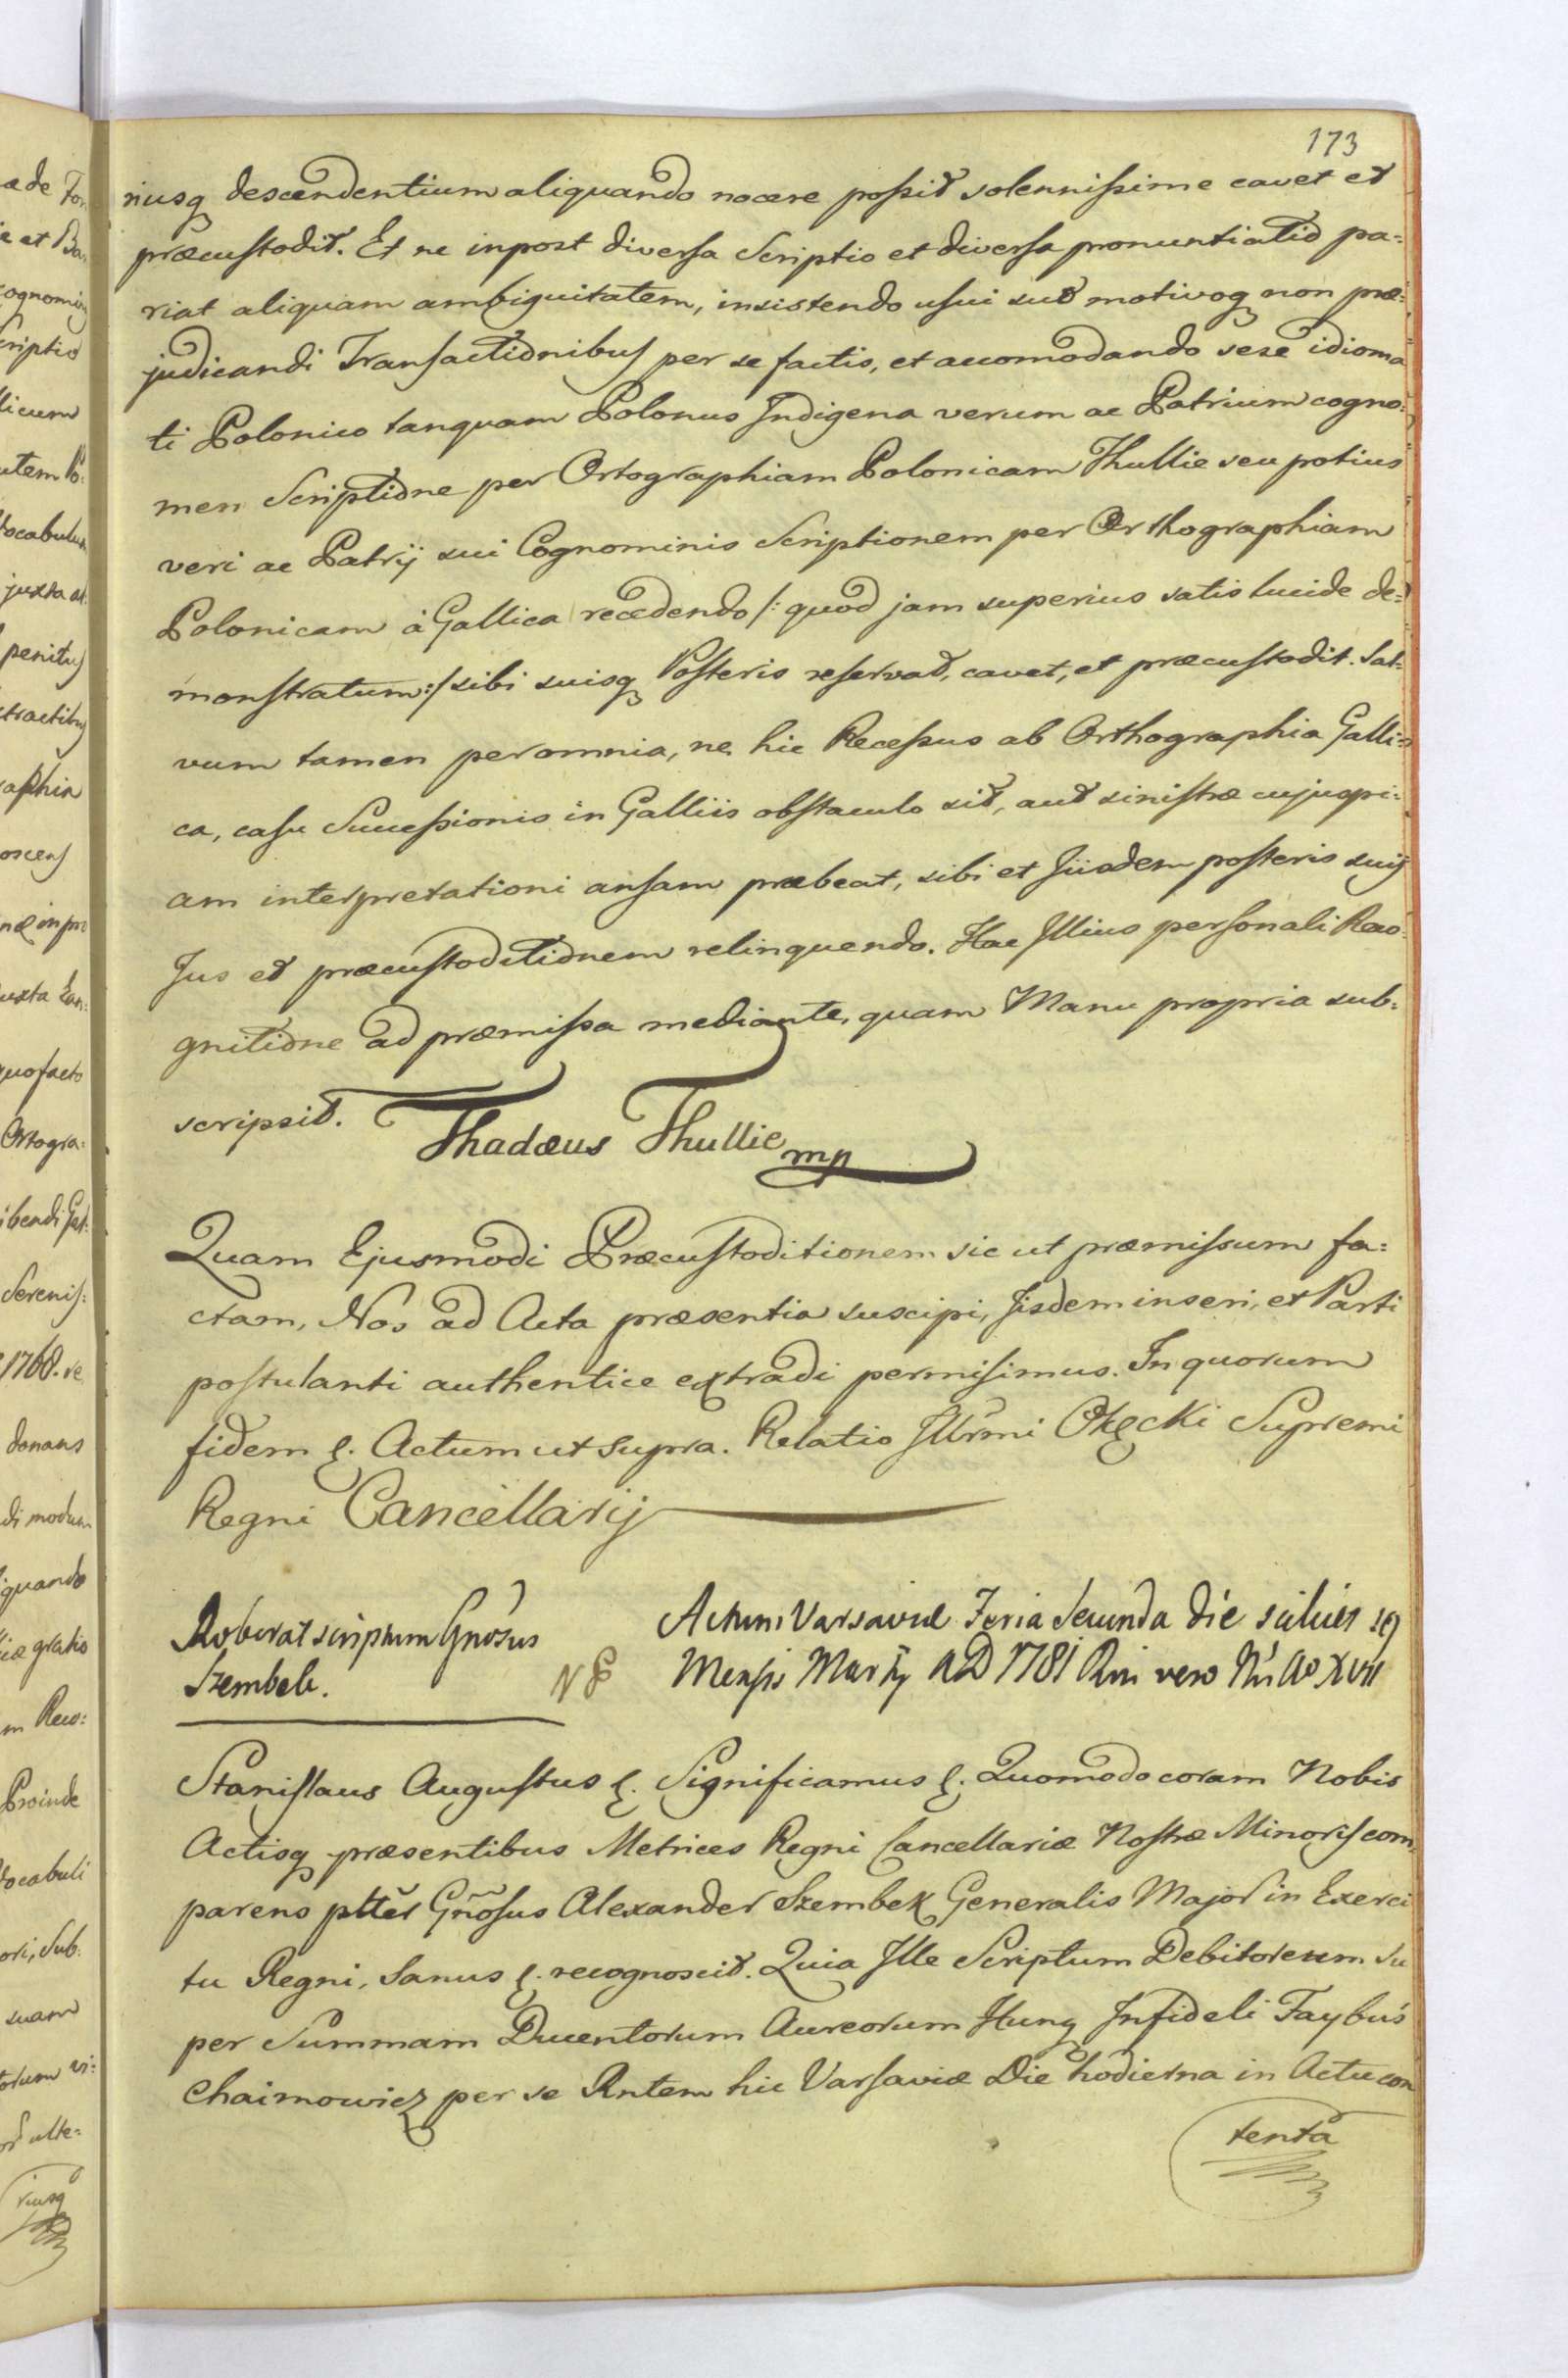 173
riusq descendentium aliquando nocere possit solennissime cavet et
præcustodit. Et ne inpost diversa Scriptio et diversa pronuntiatio pa=
riat aliquam ambiguitatem, insistendo usui suo motivoq non præ=
judicandi Transactionibus per se factis, et accomodando sese idioma
ti Polonico tanquam Polonus Indigena verum ac Patrium cogno=
men Scriptione per Ortographiam Polonicam Thullie seu potius
veri ac Patrij sui Cognominis Scriptionem per Orthographiam
Polonicam à Gallica recedendo /: quod jam superius satis lucide de=
monstratum :/ sibi suisq Posteris reservat, cavet, et præcustodit. Sal=
vum tamen per omnia, ne hic Recessus ab Orthographia Galli=
ca, casu Successionis in Galliis obstaculo sit, aut sinistræ cujuspi=
am interpretationi ansam præbeat, sibi et Iisdem posteris suis
Jus et præcustoditionem relinquendo. Hac Illius personali Reco=
gnitione ad præmissa mediante, quam Manu propria sub=
scripsit. Thadæus Thullie mp
Quam Ejusmodi Præcustoditionem sic ut præmissum fa=
ctam, Nos ad Acta præsentia suscipi, Iisdem inseri, et Parti
postulanti authentice extradi permisimus. In quorum
fidem &. Actum ut supra. Relatio Illrmi Okęcki Supremi
Regni Cancellarij
Roborat scriptum Gnosus
Szembek.
Actum Varsaviæ Feria Secunda die scilicet 19
Mensis Martij AD 1781 Rni vero Nri Ao XVII
Stanislaus Augustus &. Significamus &. Quomodo coram Nobis
Actisq præsentibus Metrices Regni Cancellariæ Nostræ Minoris com
parens ptter Gnosus Alexander Szembek Generalis Major in Exerci
tu Regni, Sanus &. recognoscit. Quia Ille Scriptum Debitoreum su
per Summam Ducentorum Aureorum Hung Infideli Faybus
Chaimowicz per se Rntem hic Varsaviæ Die hodierna in Actu con
tenta